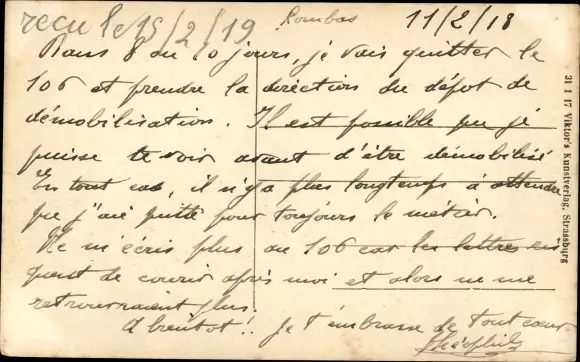 reçu le 15/2/19
Rombas 11/2/18
Dans 8 ou 10 jours, je vais quitter le
106 et prendre la direction du dépot de
démobilisation. Il est possible que je
puisse te voir avant d'être démobilisé
En tout cas, il n'y a plus longtemps à attendre
que j'aie quitté pour toujours le métier.
Ne m'écris plus au 106 car les lettres ris
quent de courir après moi et alors ne me
retrouvraient plus.
A bientot!! Je t'embrasse de tout cœur
Théophile
31 1 17 Viktor's Kunstverlag, Strassburg